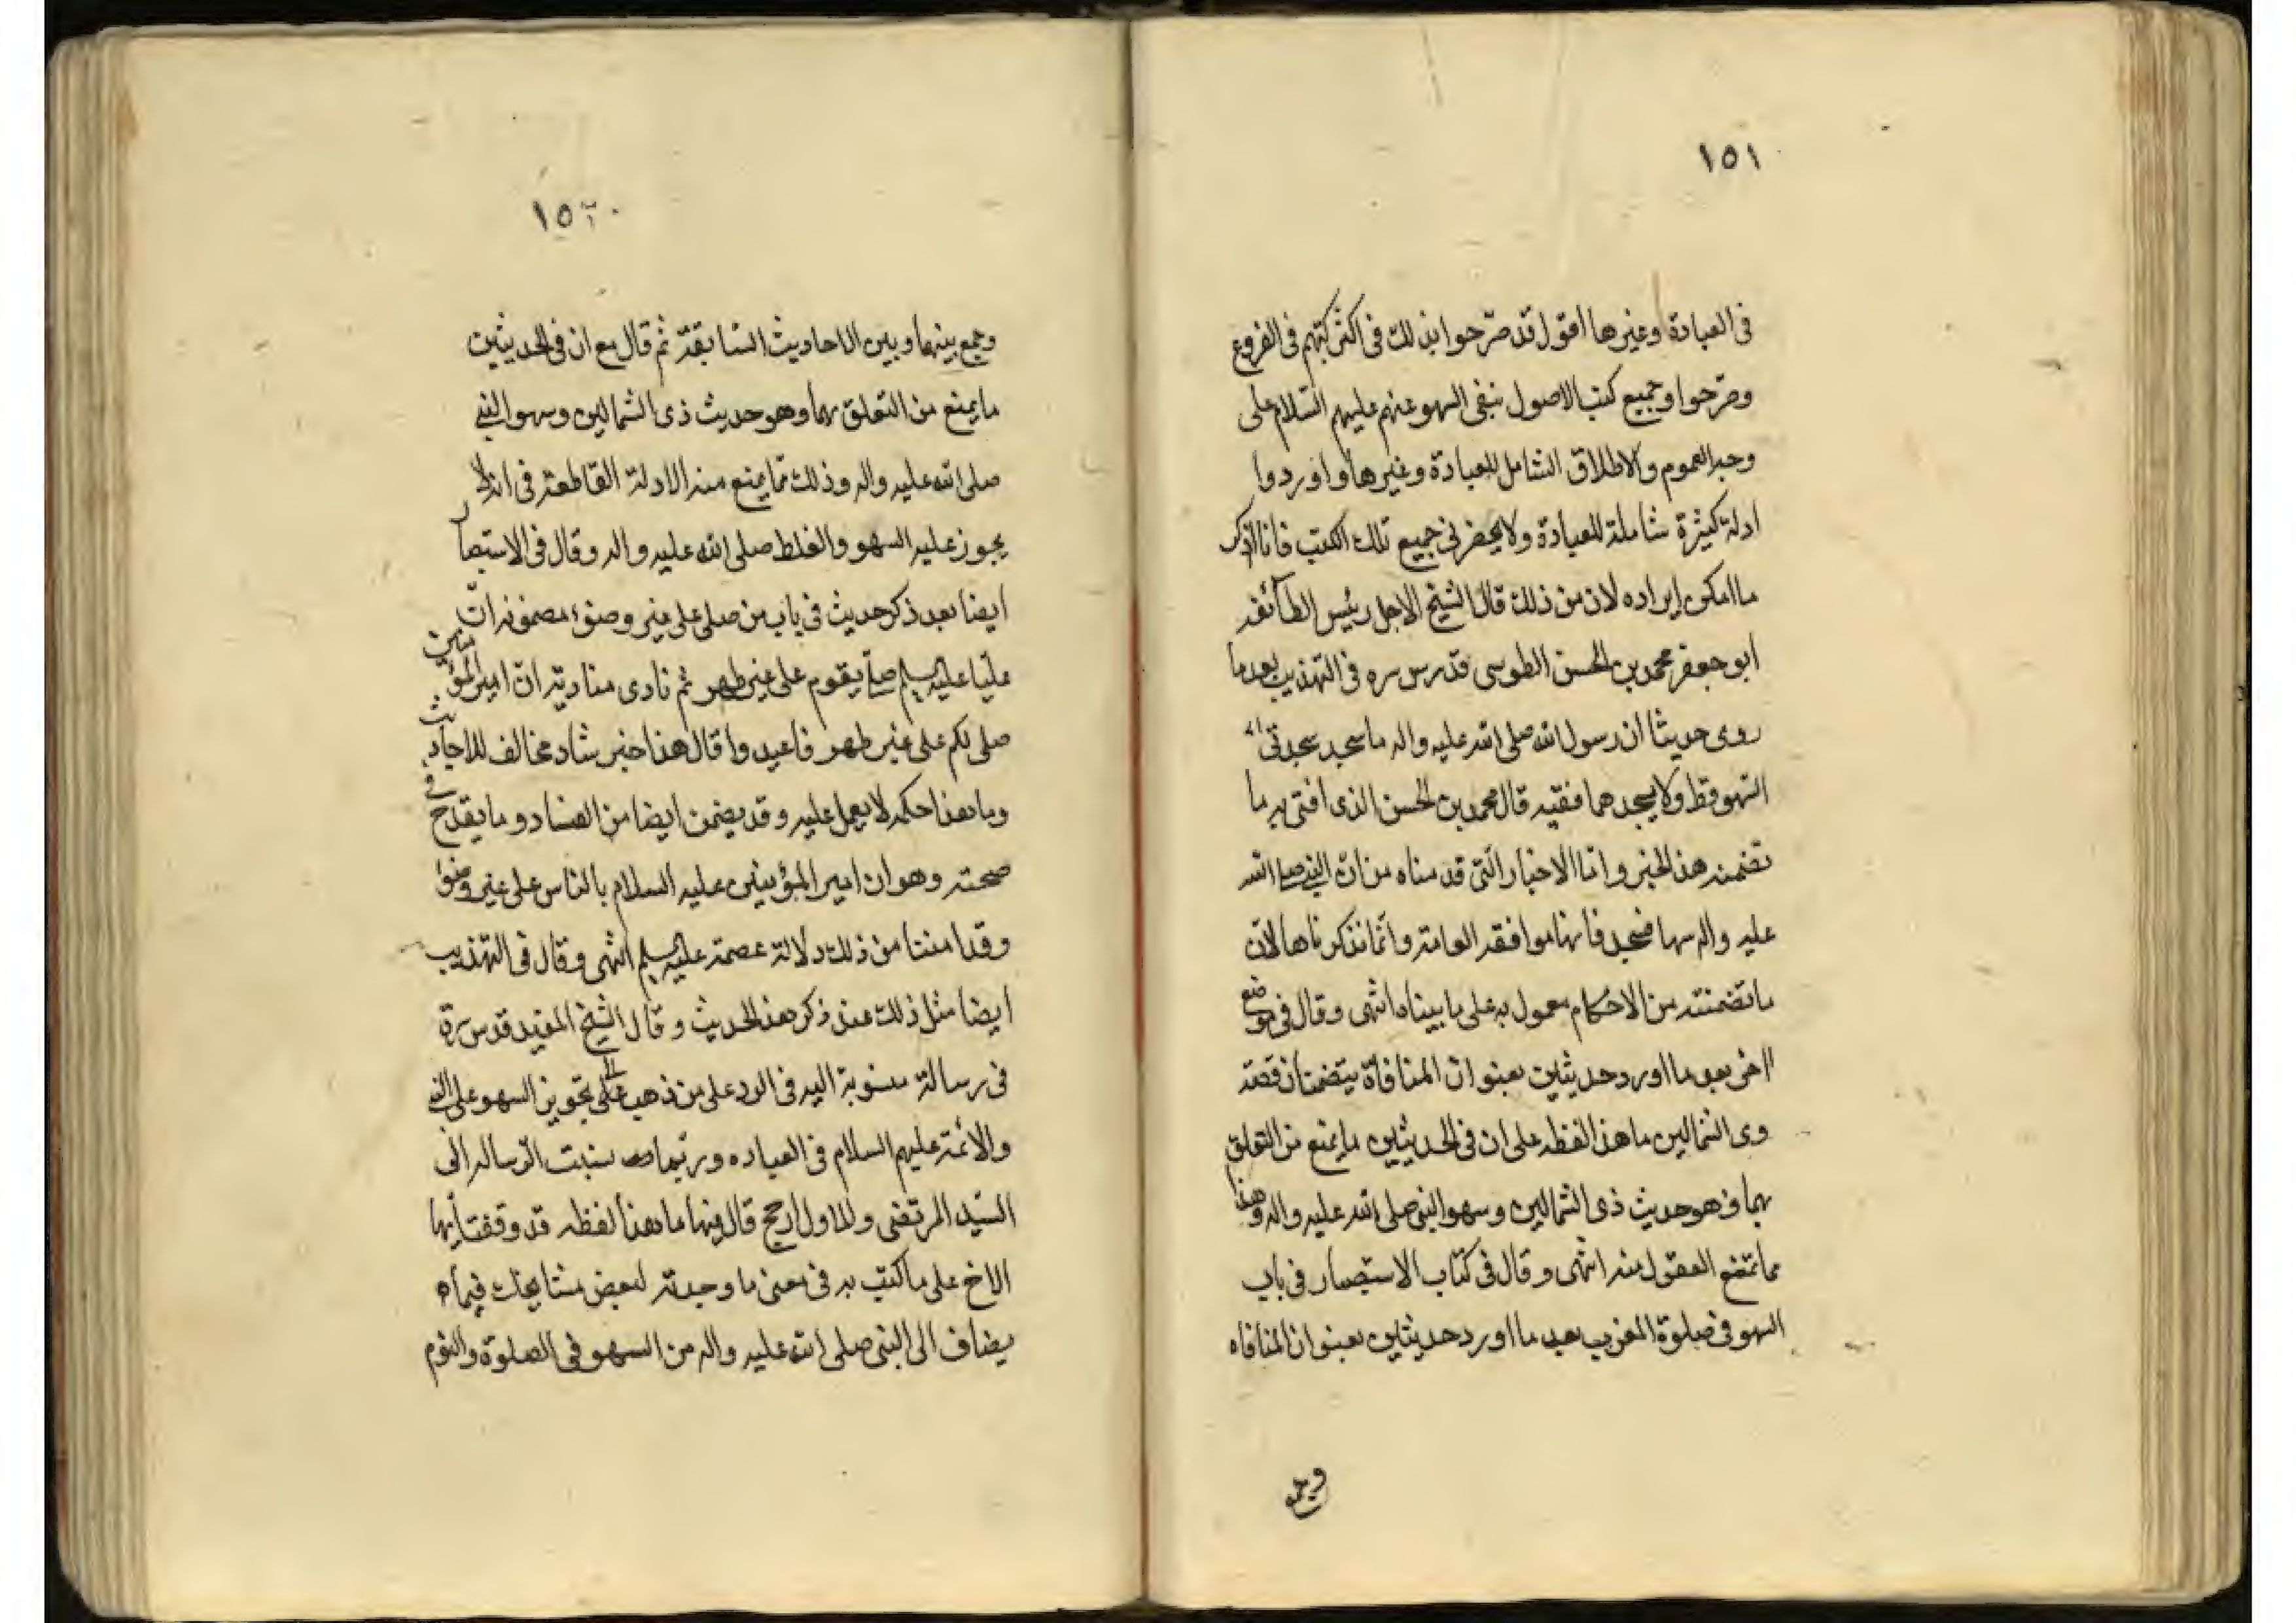 ١٥١
فى العبادة وغيرها اقول قد صرّحوا بذلك فى اكثر كتبهم فى الفروع
وصرّحوا وجميع كتب الاصول بنفى السهو عنهم عليهم السّلام على
وجه العموم والاطلاق الشامل للعبادة وغيرها واوردوا
ادلة كثيرة شاملة للعبادة ولا يحضرنى جميع تلك الكتب فانا اذكر
ما امكن ايراده لان من ذلك قال الشيخ الاجل رئيس الطائفه
ابو جعفر محمد بن الحسن الطوسى قدس سره فى التهذيب بعد ما
روى حديثا ان رسول الله صلى الله عليه واله ما سجد سجدتى
السّهو قط ولا يسجدهما فقيه قال محمد بن الحسن الذى افتى به ما
تضمنه هذا الخبر واما الاخبار الّتى قدمناه من انّ النبى صلى الله
عليه واله سها فسجد فانها موافقه العامة وانّما ذكرناها لانّ
ما تضمنته من الاحكام معمول به على ما بيناه انتهى وقال فى موضع
اخر بعد ما اورد حديثين بعنوان المنافاة يتضمنان قصّه
وى الشمالين ما هذا لفظه على ان فى الحديثين ما يمنع من التعلق
بهما وهو حديث ذى الشمالين وسهو النبى صلى الله عليه واله وهذا
مما تمنع العقول منه انتهى وقال فى كتاب الاستبصار فى باب
السهو فى صلوة المغرب بعد ما اورد حديثين بعنوان المنافاه
وجمع
١٥٢
وجمع بينهما وبين الاحاديث السّابقة ثم قال مع ان فى الحديثين
ما يمنع من التعلق بهما وهو حديث ذى الشمالين وسهو النبى
صلى الله عليه واله وذلك ممّا يمنع منه الادلة القاطعة فى انه لا
يجوز عليه السهو والغلط صلى الله عليه واله وقال فى الاستبصار
ايضا بعد ذكر حديث فى باب من صلى على غير وضوء مضمونه انّ
عليّا عليه السلم صلّ بقوم على غير طهر ثم نادى مناديه ان امير المؤمنين
صلى لكم على غير طهر فاعيدوا قال هذا خبر شاذ مخالف للاحاديث
وما هذا حكمه لا يعمل عليه وقد يضمن ايضا من الفساد وما يقدح فى
صحته وهو ان امير المؤمنين عليه السلام بالناس على غير وضوء
وقد امننا من ذلك دلالة عصمته عليه السلم انتهى وقال فى التهذيب
ايضا مثل ذلك عند ذكر هذا الحديث وقال الشيخ المفيد قدس سرّه
فى رسالة منسوبة اليه فى الرد على من ذهب الى تجويز السهو على النبى
والائمة عليهم السلام فى العباده وربّما نسبت الرّساله الى
السّيد المرتضى والاول ارجح قال فيها ما هذا لفظه قد وقفت ايها
الاخ على ما كتب به فى معنى ما وجدته لبعض مشايخك فيما
يضاف الى النبى صلى الله عليه واله من السهو فى الصلوة والنوم